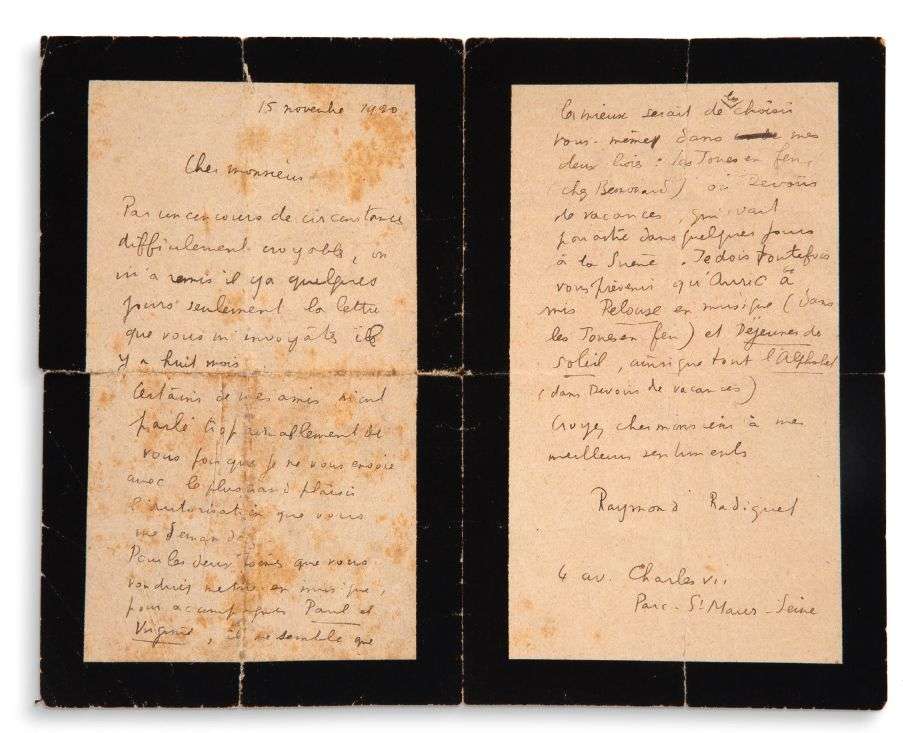 15 novembre 1920
Cher monsieur
Par un concours de circonstances
difficilement croyable, on
m'a remis il y a quelques
jours seulement la lettre
que vous m'envoyâtes il
y a huit mois
Certains de mes amis m'ont
parlé trop amicalement de
vous pour que je ne vous envoie
avec le plus grand plaisir
l'autorisation que vous
me demandez.
Pour les deux poèmes que vous
voudriez mettre en musique,
pour accompagner Paul et
Virginie, il me semble que
le mieux serait de les choisir
vous-même dans mes
deux livres : les Joues en feu
(chez Bernouard) ou Devoirs
de vacances, qui vont
paraître dans quelques jours
à la Sirène. Je dois toutefois
vous prévenir qu'Auric a
mis Pelouse en musique (dans
les Joues en feu) et Déjeuner de
soleil, ainsi que tout l'Alphabet
(dans Devoirs de vacances)
Croyez cher monsieur à mes
meilleurs sentiments
Raymond Radiguet
4 av. Charles VII
Parc-St Maur-Seine